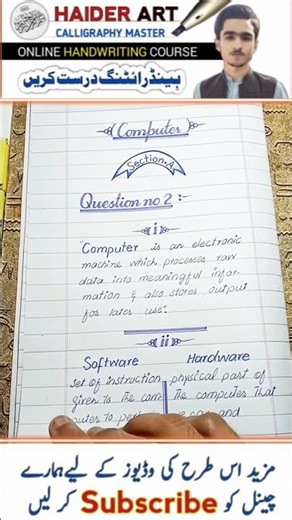 HAIDER ART
CALLIGRAPHY MASTER
ONLINE HANDWRITING COURSE
ہینڈ رائٹنگ درست کریں
Computer
Section-A
Question no 2 :-
i
"Computer is an electronic
machine which processes raw
data into meaningful infor-
mation & also stores output
for later use".
ii
Software Hardware
Set of instruction physical part of
given to the com the computer that
puter to
مزید اس طرح کی وڈیوز کے لیے ہمارے
چینل کو Subscribe کر لیں